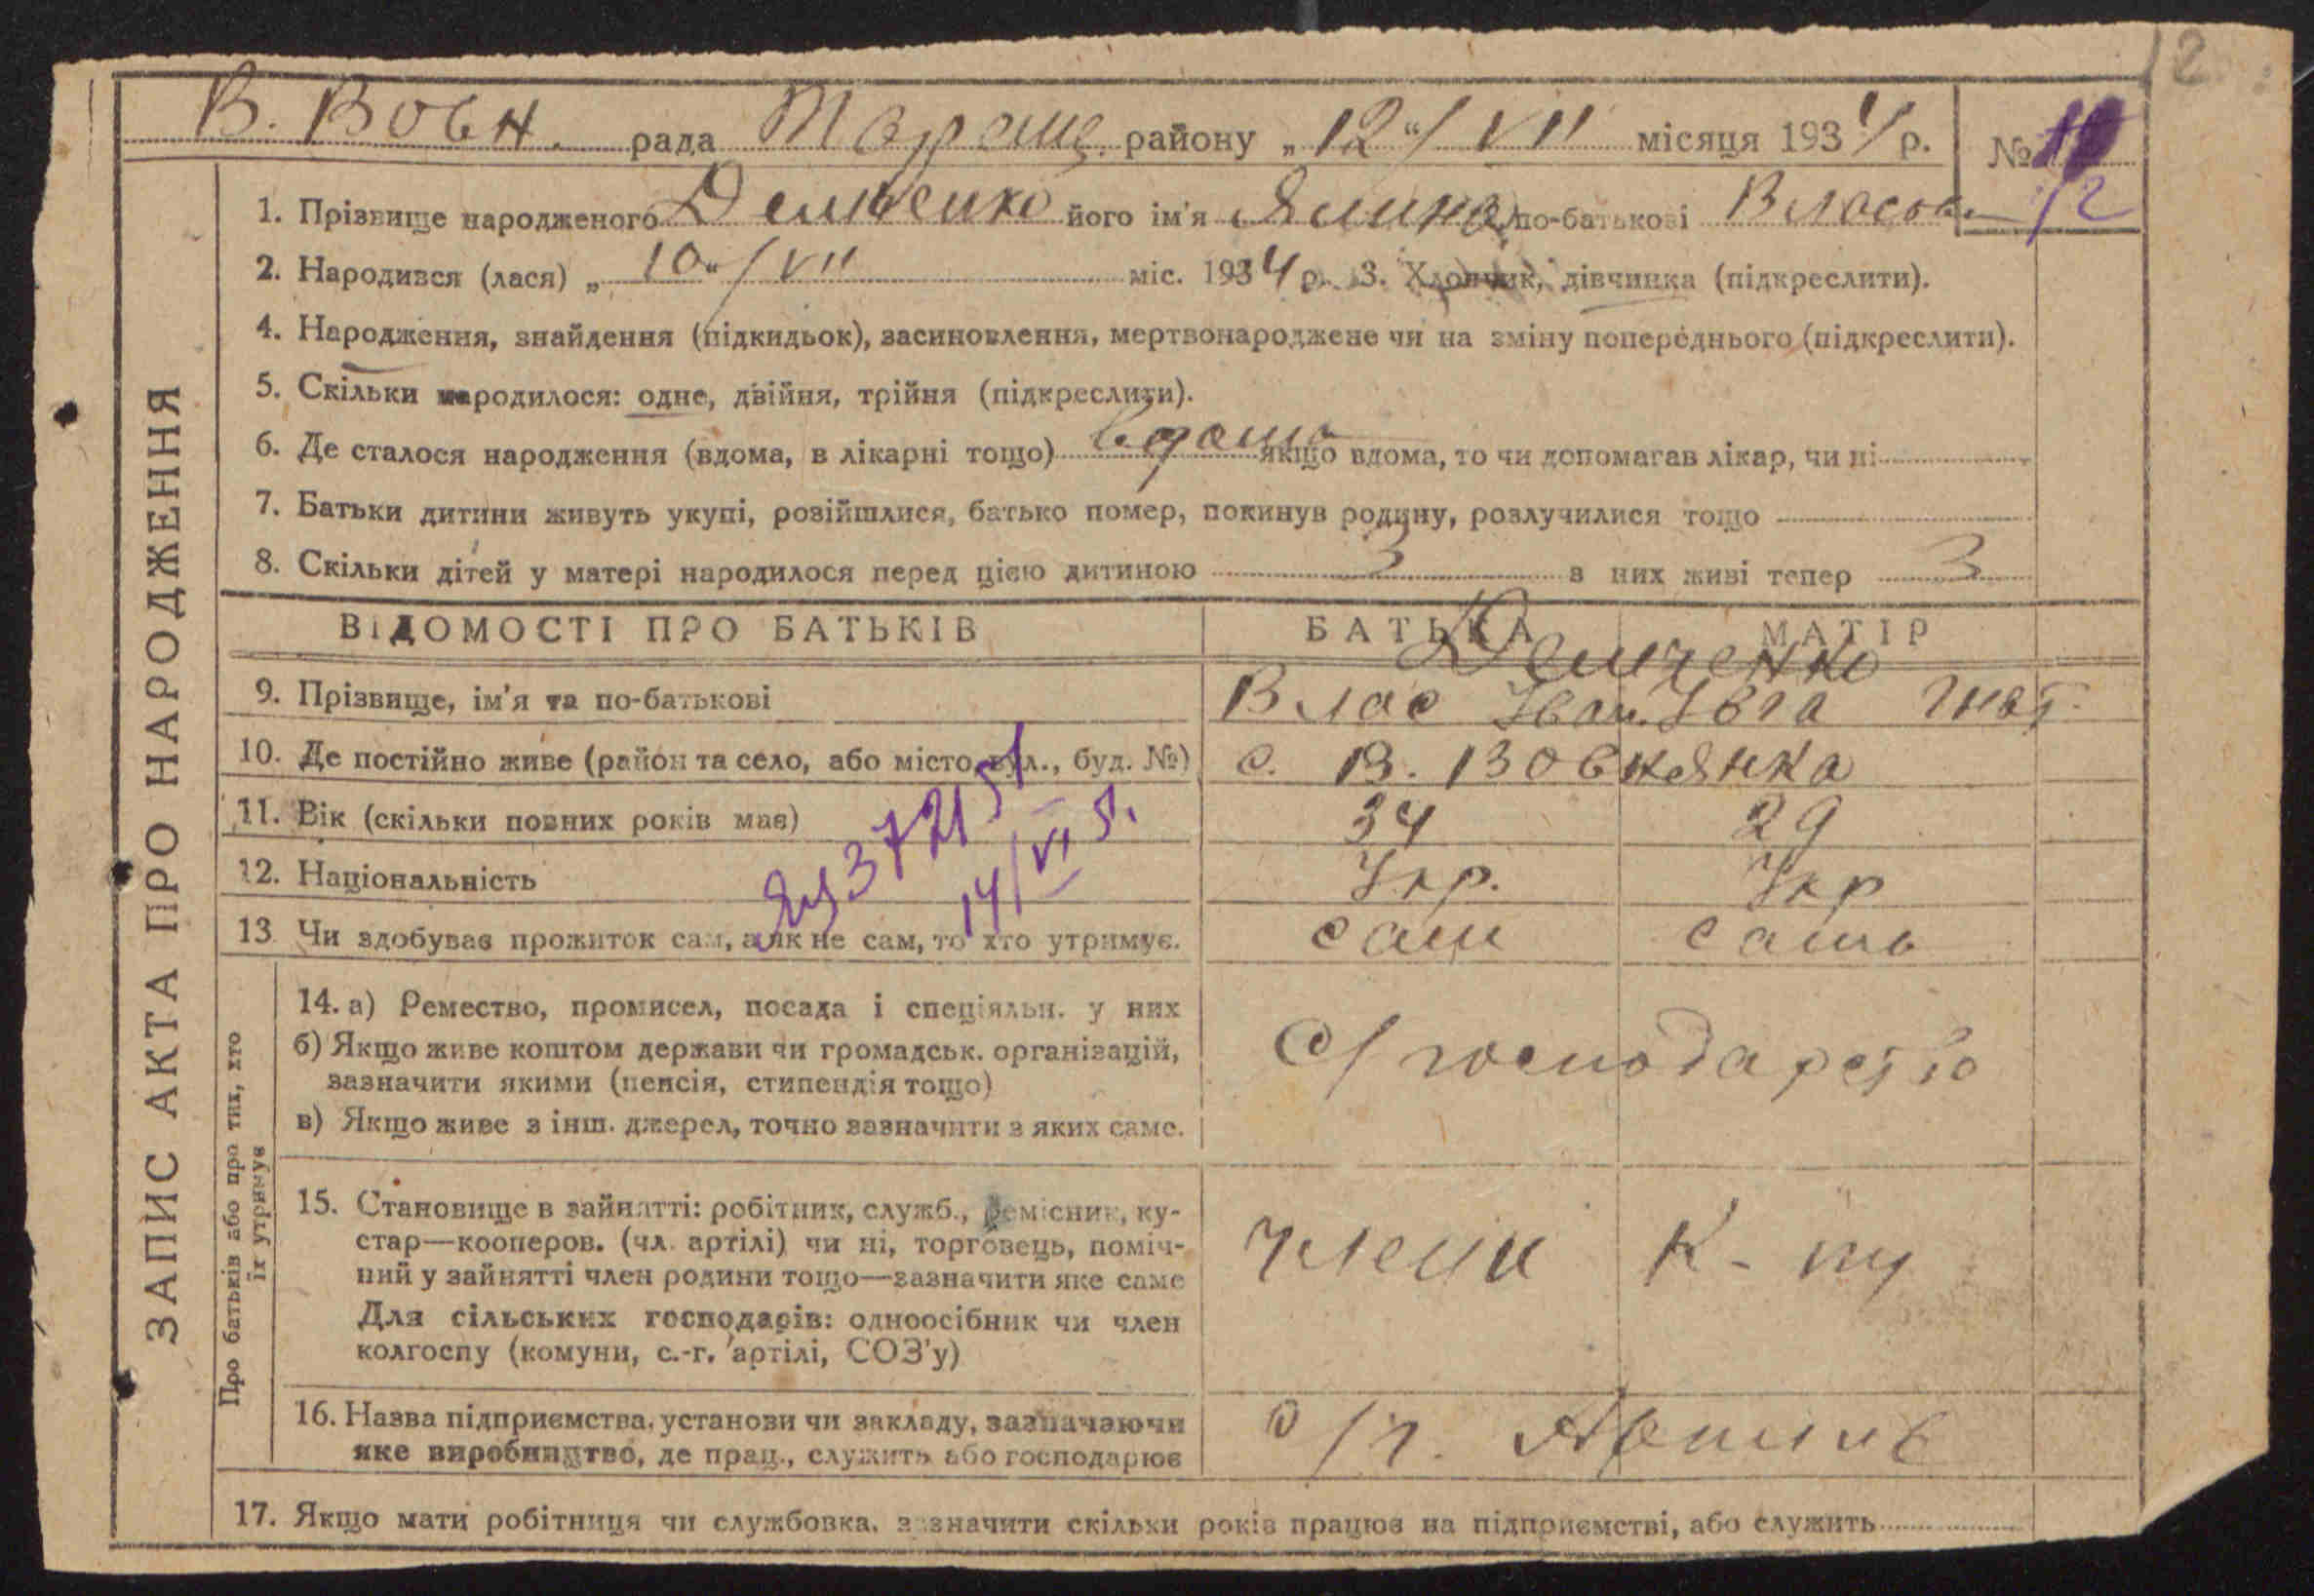 2
В. Вовн. рада Таращ. району „12“/VII місяця 1934 р. № 12
1. Прізвище народженого Демченко його ім'я Ялина по-батькові Власов.
2. Народився (лася) „10“/VII міс. 1934 р. 3. Хлопчик, дівчинка (підкреслити).
4. Народження, знайдення (підкидьок), засиновлення, мертвонароджене чи на зміну попереднього (підкреслити).
5. Скільки народилося: одне, двійня, трійня (підкреслити).
6. Де сталося народження (вдома, в лікарні тощо) вдома якщо вдома, то чи допомагав лікар, чи ні
7. Батьки дитини живуть укупі, розійшлися, батько помер, покинув родину, розлучилися тощо
8. Скільки дітей у матері народилося перед цією дитиною 3 з них живі тепер 3
ВІДОМОСТІ ПРО БАТЬКІВ БАТЬКА МАТІР
Демченко
9. Прізвище, ім'я та по-батькові Влас Іван. Ївга
10. Де постійно живе (район та село, або місто, вул., буд. №) с. В. Вовнянка
11. Вік (скільки повних років має) 34 29
12. Національність Укр. Укр
13 Чи здобуває прожиток сам, а як не сам, то хто утримує. сам сама
372151
14/VI 5.
14. а) Ремество, промисел, посада і спеціяльн. у них
б) Якщо живе коштом держави чи громадськ. організацій,
зазначити якими (пенсія, стипендія тощо)
в) Якщо живе з інш. джерел, точно зазначити з яких саме.
с/господарство
15. Становище в зайнятті: робітник, служб., ремісник, ку-
стар—кооперов. (чл. артілі) чи ні, торговець, поміч-
ний у зайнятті член родини тощо—зазначити яке саме
Для сільських господарів: одноосібник чи член
колгоспу (комуни, с.-г. артілі, СОЗ'у)
члени к-пу
16. Назва підприємства, установи чи закладу, зазначаючи
яке виробництво, де прац., служить або господарює
с/г.
17. Якщо мати робітниця чи службовка, зазначити скільки років працює на підприємстві, або служить
ЗАПИС АКТА ПРО НАРОДЖЕННЯ
Про батьків або про тих, хто
їх утримує